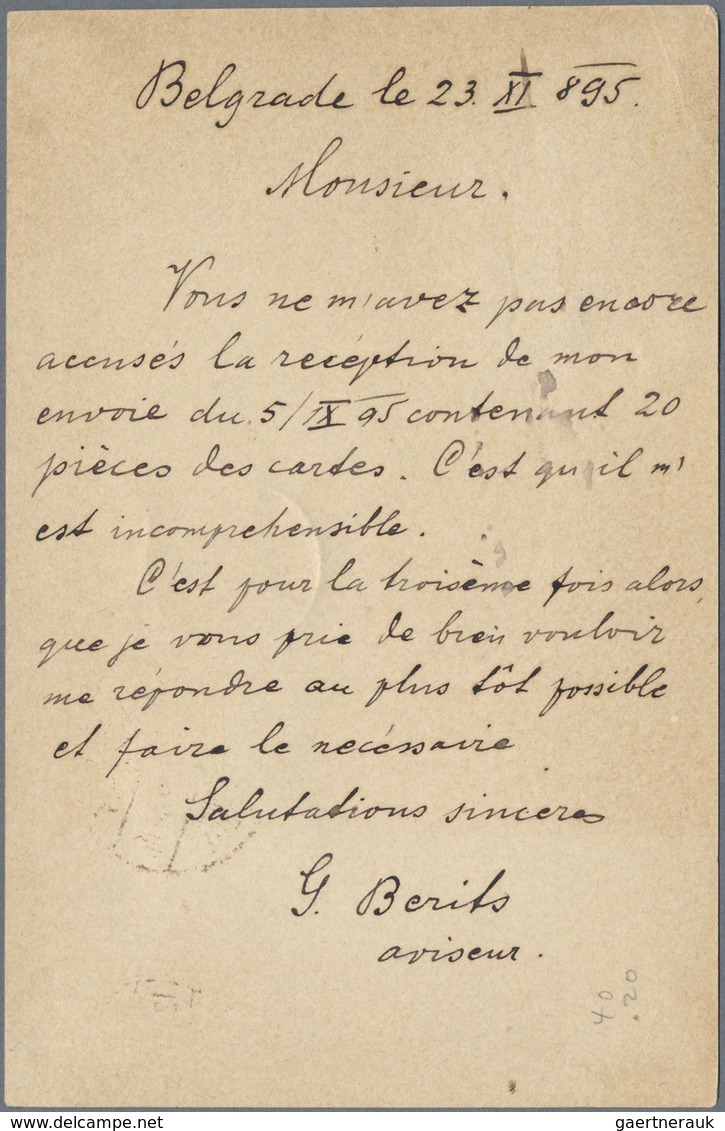 Belgrade le 23. XI 895.
Monsieur.
Vous ne m'avez pas encore
accusés la recéption de mon
envoie du 5/IX 95 contenant 20
pièces des cartes. C'est qu'il m'
est incomprehensible.
C'est pour la troisème fois alors,
que je vous prie de bien vouloir
me répondre au plus tôt possible
et faire le necéssaire
Salutations sinceres
G. Berits
aviseur.
40
.20
gaertnerauk